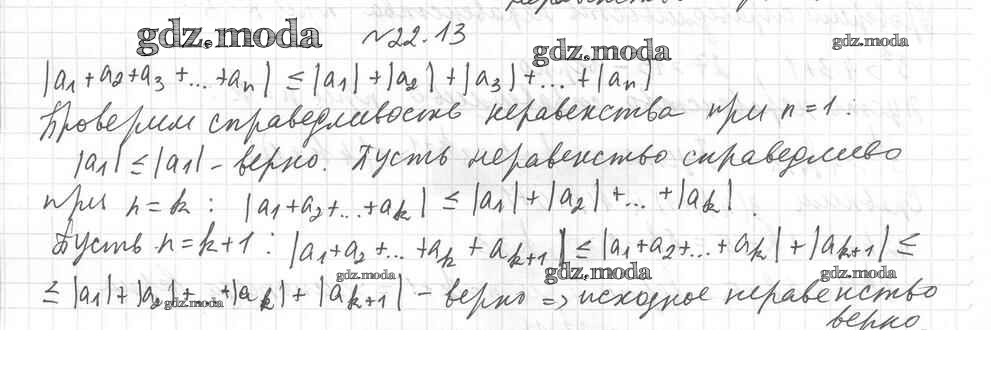 gdz.moda №22.13 gdz.moda gdz.moda
|a₁+a₂+a₃+...+aₙ| ≤ |a₁|+|a₂|+|a₃|+...+|aₙ|
Проверим справедливость неравенства при n=1.
|a₁| ≤ |a₁| - верно. Пусть неравенство справедливо
при n=k: |a₁+a₂+...+aₖ| ≤ |a₁|+|a₂|+...+|aₖ|.
Пусть n=k+1: |a₁+a₂+...+aₖ+aₖ₊₁| ≤ |a₁+a₂+...+aₖ|+|aₖ₊₁| ≤
gdz.moda gdz.moda gdz.moda
≤ |a₁|+|a₂|+...+|aₖ|+|aₖ₊₁| - верно => исходное неравенство
gdz.moda
верно